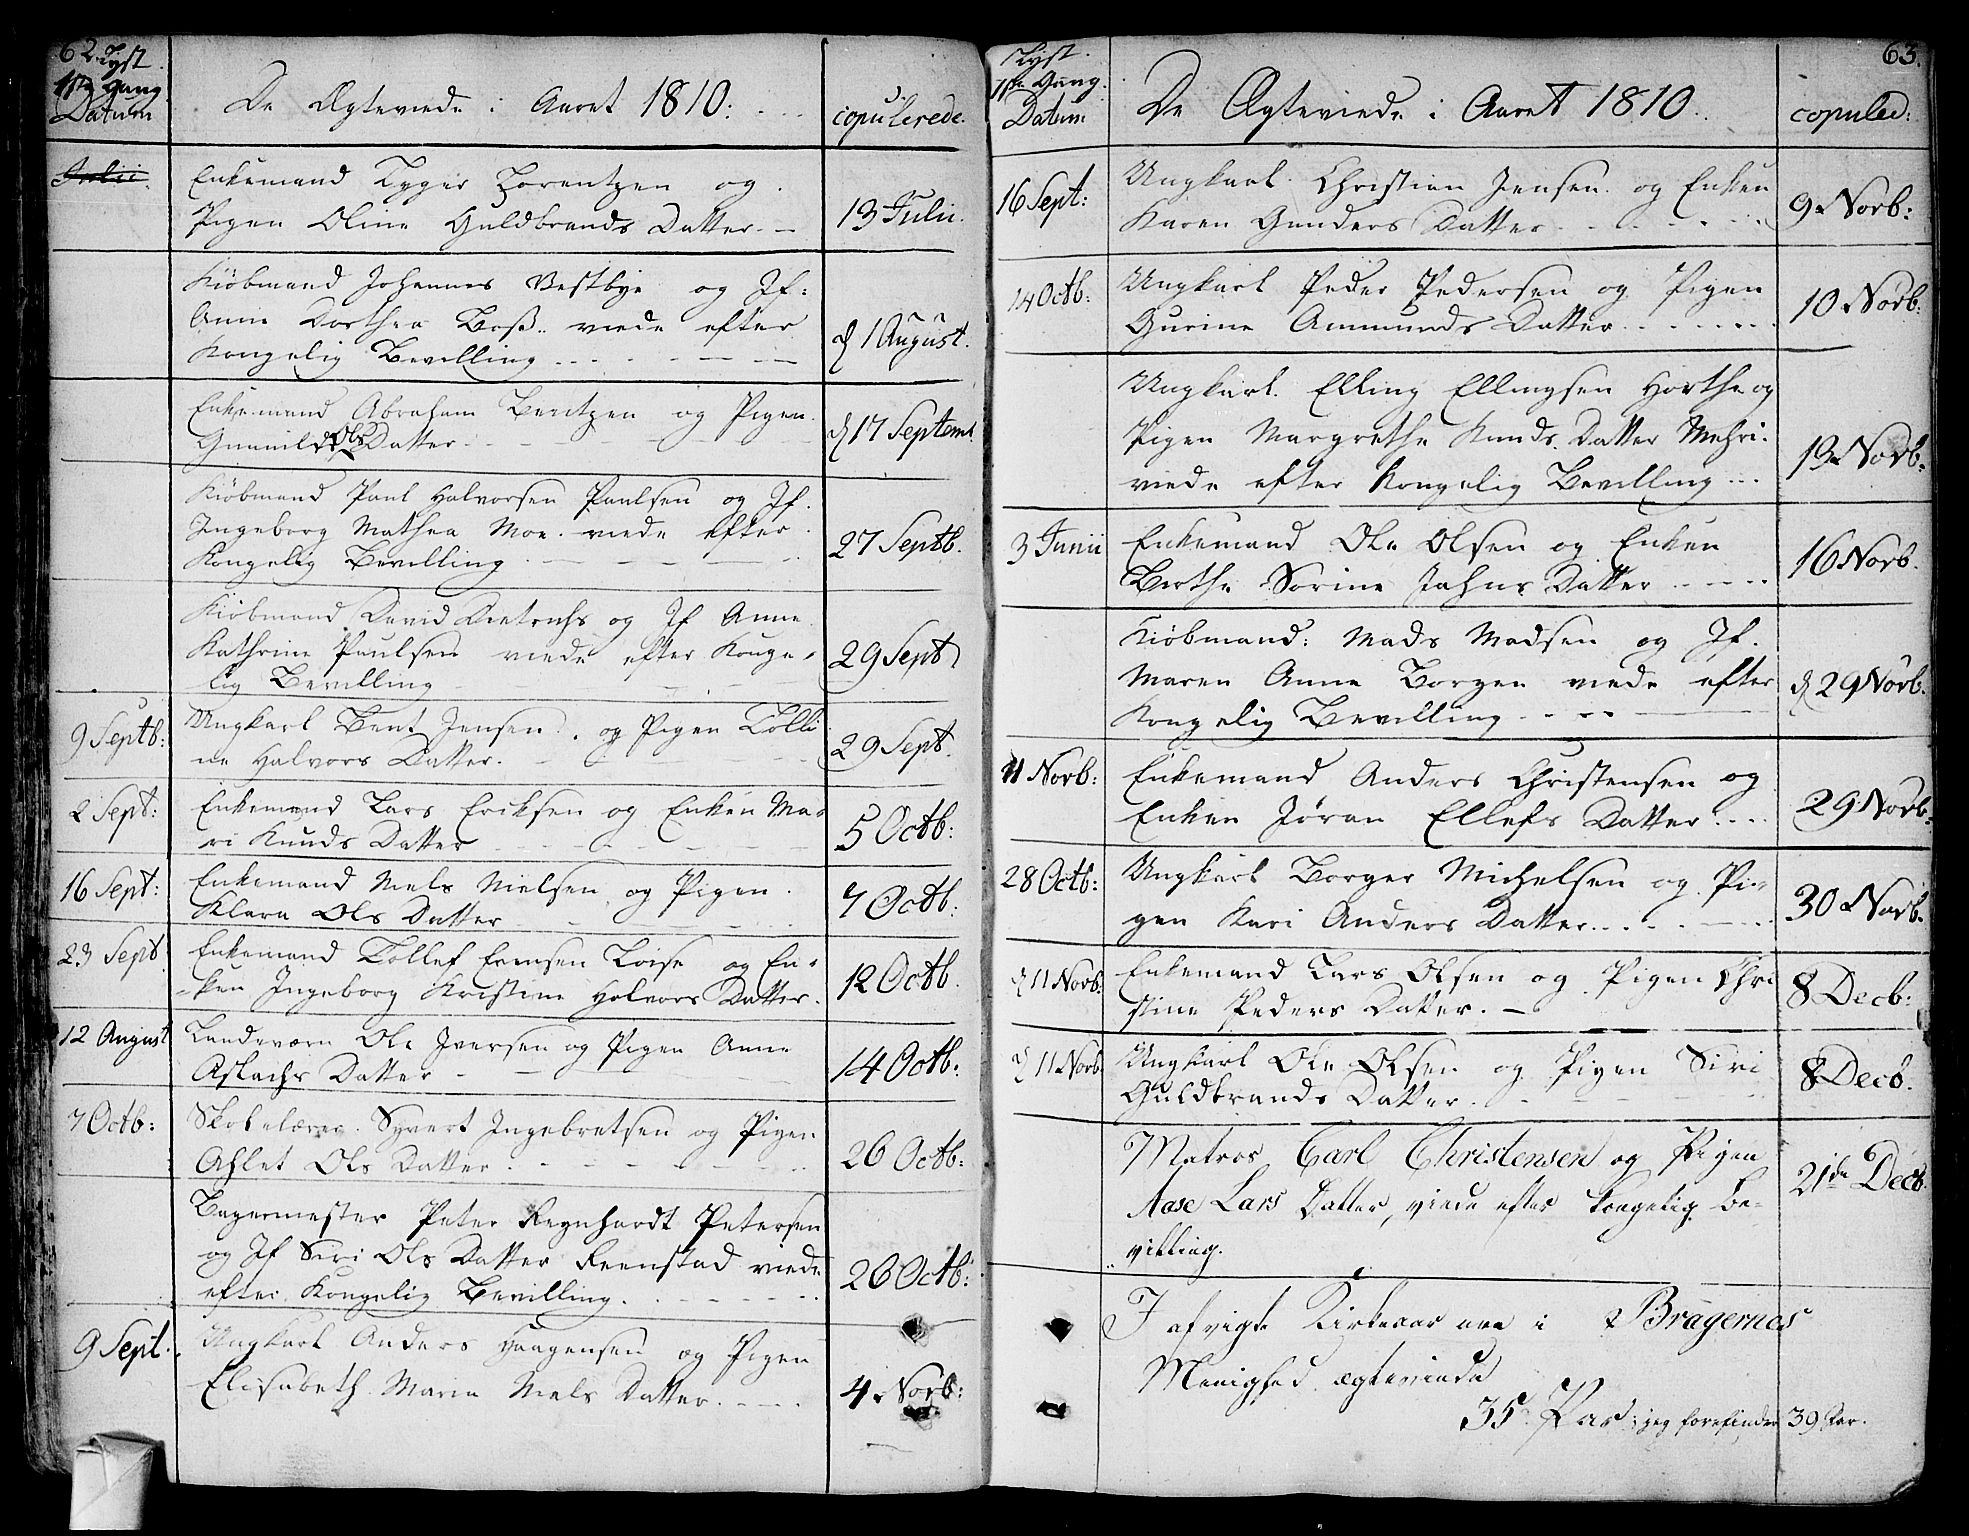 62. Lyst
1ste Gang
Datum
De Ægteviede i Aaret 1810.
copulerede.
Julii.
Enkemand Tyger Lorentzen og
Pigen Oline Guldbrands Datter.
13 Julii.
Kiöbmand Johannes Vestbye og Jf:
Anne Dorthea Boß.. viede efter
Kongelig Bevilling
d 1 August.
Enkemand Abraham Bentzen og Pigen
Gunnild Ols Datter
d 17 Septemb
Kiöbmand Paul Halvorsen Paulsen og Jf.
Ingeborg Mathea Moe. viede efter
Kongelig Bevilling
27 Septb.
Kiöbmand David Dietrichs og Jf Anne
Kathrine Paulsen viede efter Konge-
lig Bevilling
29 Sept
9 Septb:
Ungkarl Bent Jensen. og Pigen Tolli
ne Halvors Datter.
29 Sept.
2 Sept:
Enkemand Lars Ericksen og Enken Ma-
ri Knuds Datter
5 Octb:
16 Sept:
Enkemand Niels Nielsen og Pigen
Klara Ols Datter
7 Octb:
23 Sept
Enkemand Tollef Loise og En-
-ken Ingeborg Kristine Halvors Datter.
12 Octb.
12 August
Landeværn Ole Iversen og Pigen Anne
Aslachs Datter
14 Octb:
7 Octb:
Syvert Ingebretsen og Pigen
Ahlet Ols Datter
26 Octb:
Bagermester Peter Reynhardt Petersen
og Jf Siri Ols Datter Reenstad viede
efter Kongelig Bevilling.
26 Octb:
9 Sept.
Ungkarl Anders Haagensen og Pigen
Elisabeth Maria Niels Datter.
4 Novb:
Lyst.
1ste Gang.
Datum
De Ægteviede i Aaret 1810.
63.
copuled:
16 Sept:
Ungkarl Christian Jensen og Enken
Karen Gunders Datter
9 Novb:
14 Octb:
Ungkarl Peder Pedersen og Pigen
Gurine Ammunds Datter
10 Novb:
Ungkarl. Elling Ellingsen Horthe og
Pigen Margrethe Knuds Datter Mehri.
viede efter Kongelig Bevilling
13 Novb:
3 Junii
Enkemand Ole Olsen og Enken
Berthe Sorine Jahns Datter
16 Novb.
Kiöbmand: Mads Madsen og Jf.
Maren Anne Borgen viede efter
Kongelig Bevilling
d 29 Novb.
11 Novb:
Enkemand Anders Christensen og
Enken Jøran Ellefs Datter.
29 Novb:
28 Octb:
Ungkarl Borger Michelsen og Pi-
gen Kari Anders Datter.
30 Novb.
d 11 Novb:
Enkemand Lars Olsen og Pigen Chri
stine Peders Datter.
8 Decb:
d 11 Novb
Ungkarl Ole Olsen og Pigen Siri
Guldbrands Datter.
8 Decb.
Matros Carl Christensen og Pigen
Aase Lars Datter, viede efter kongelig Be-
villing.
21de Decb.
I afvigte Kirkeaar ere i Bragernes
Menighed ægteviede
35 Par; jeg forefinder 39 Par.